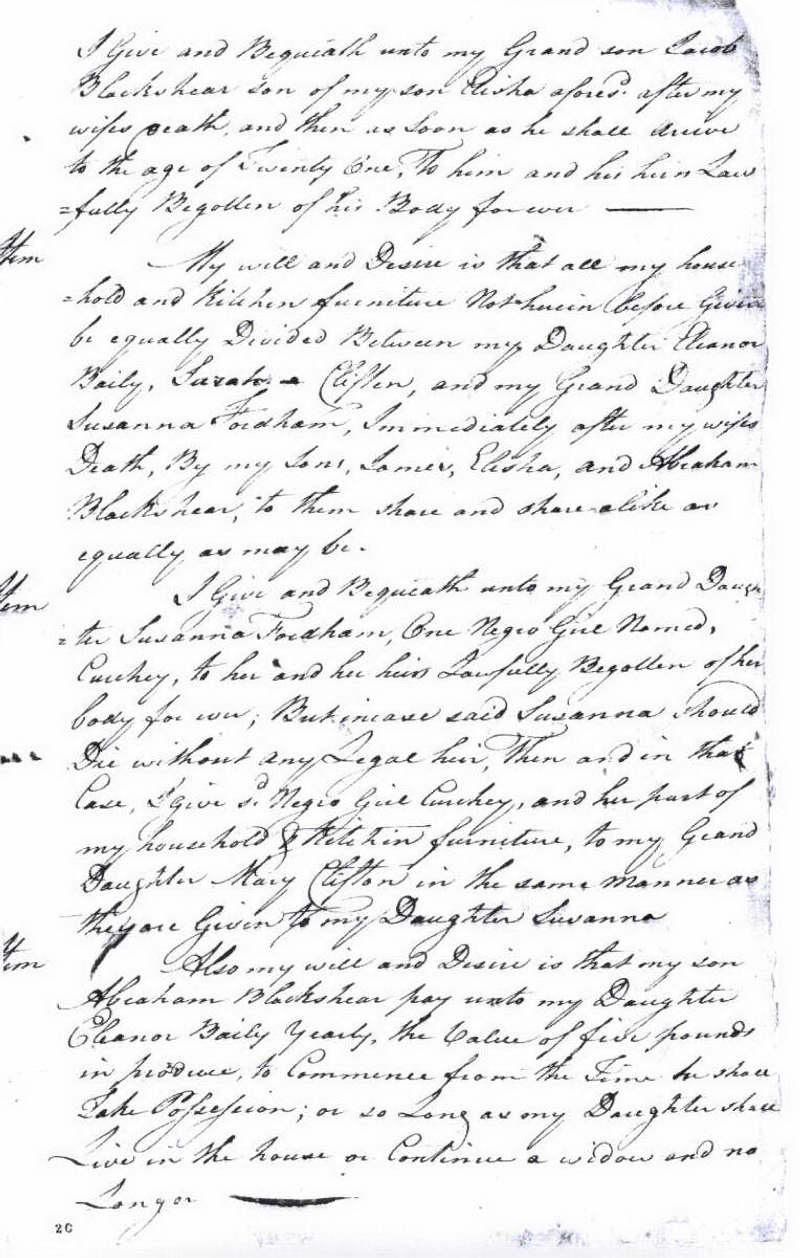 I Give and Bequeath unto my Grand son Jacob
Blackshear son of my son Elisha afores.d after my
wifes Death, and then as Soon as he shall Arive
to the age of Twenty One, To him and his heirs Law
=fully Begotten of his Body for ever
Item
My will and Desire is that all my house
=hold and Kitchen furniture Not herein before Given
be equally Divided Between my Daughter Eleanor
Baily, Sarah Clifton, and my Grand Daughter
Susanna Fordham, Immediately after my wifes
Death, By my Sons, James, Elisha, and Abraham
Blackshear, to them share and share alike as
equally as may be.
Item
I Give and Bequeath unto my Grand Daugh
=ter Susanna Fordham, One Negro Girl Named,
to her and her heirs Lawfully Begotten of her
body for ever; But incase said Susanna should
Die without any Legal heir, Then and in that
Case, I give s.d Negro Girl and her part of
my household & Kitchin furniture, to my Grand
Daughter Mary Clifton in the same manner as
they are Given to my Daughter Susanna
Item
Also my will and Desire is that my son
Abraham Blackshear pay unto my Daughter
Eleanor Baily Yearly, the Value of five pounds
in produce, to Commence from the Time he shall
Take Possession; or so Long as my Daughter shall
Live in the house or Continue a widow and no
Longor
20